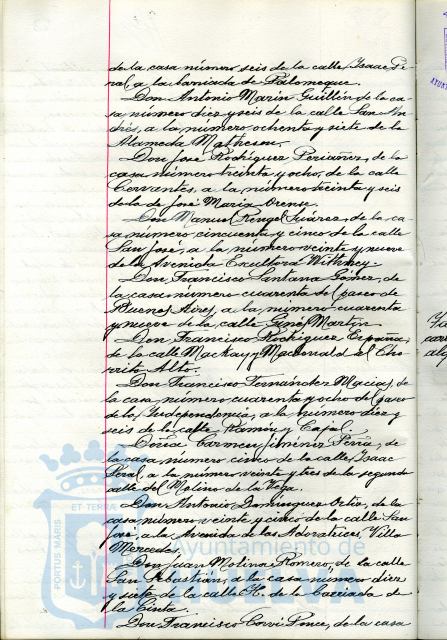 de la casa número seis de la calle Isaac Pe-
ral, a la barriada de Palomeque.
Don Antonio Marín Guillén, de la ca-
sa número diez y seis de la calle San An-
drés, a la número ochenta y siete de la
Alameda Matheson.
Don José Rodríguez Periañez, de la
casa número treinta y ocho, de la calle
Cervantes, a la número treinta y seis
de la de José María Orense.
Don Manuel Rengel Suárez, de la ca-
sa número, cincuenta y cinco de la calle
San José, a la número veinte y nueve
de la Avenida Escultora Withney-
Don Francisco Santana Gómez, de
la casa número cuarenta del paseo de
Buenos Aires, a la número cuarenta
y nueve de la calle Ginés Martín
Don Francisco Rodríguez España,
de la calle Mackay y Macdonald al Cho-
rrito Alto.
Don Francisco Fernández Macías, de
la casa, número cuarenta y ocho del paseo
de la Independencia, a la número diez y
seis de la calle, Ramón y Cajal.
Doña Carmen Jiménez Peña, de
la casa, número cinco de la calle, Isaac
Peral, a la número veinte y tres de la segunda
calle del Molino de la Vega.
Don Antonio Domínguez Ortiz, de la
casa número veinte y cinco de la calle San
José, a la Avenida de las Adoratrices, Villa
Mercedes.
Don Juan Molina Romero, de la calle
San Sebastián, a la casa número diez
y siete de la calle H. de la Barriada de
la Cinta.
Don Francisco Corvi Ponce, de la casa
PORTUS MARIS ET TERRAE
Ayuntamiento de
HUELVA